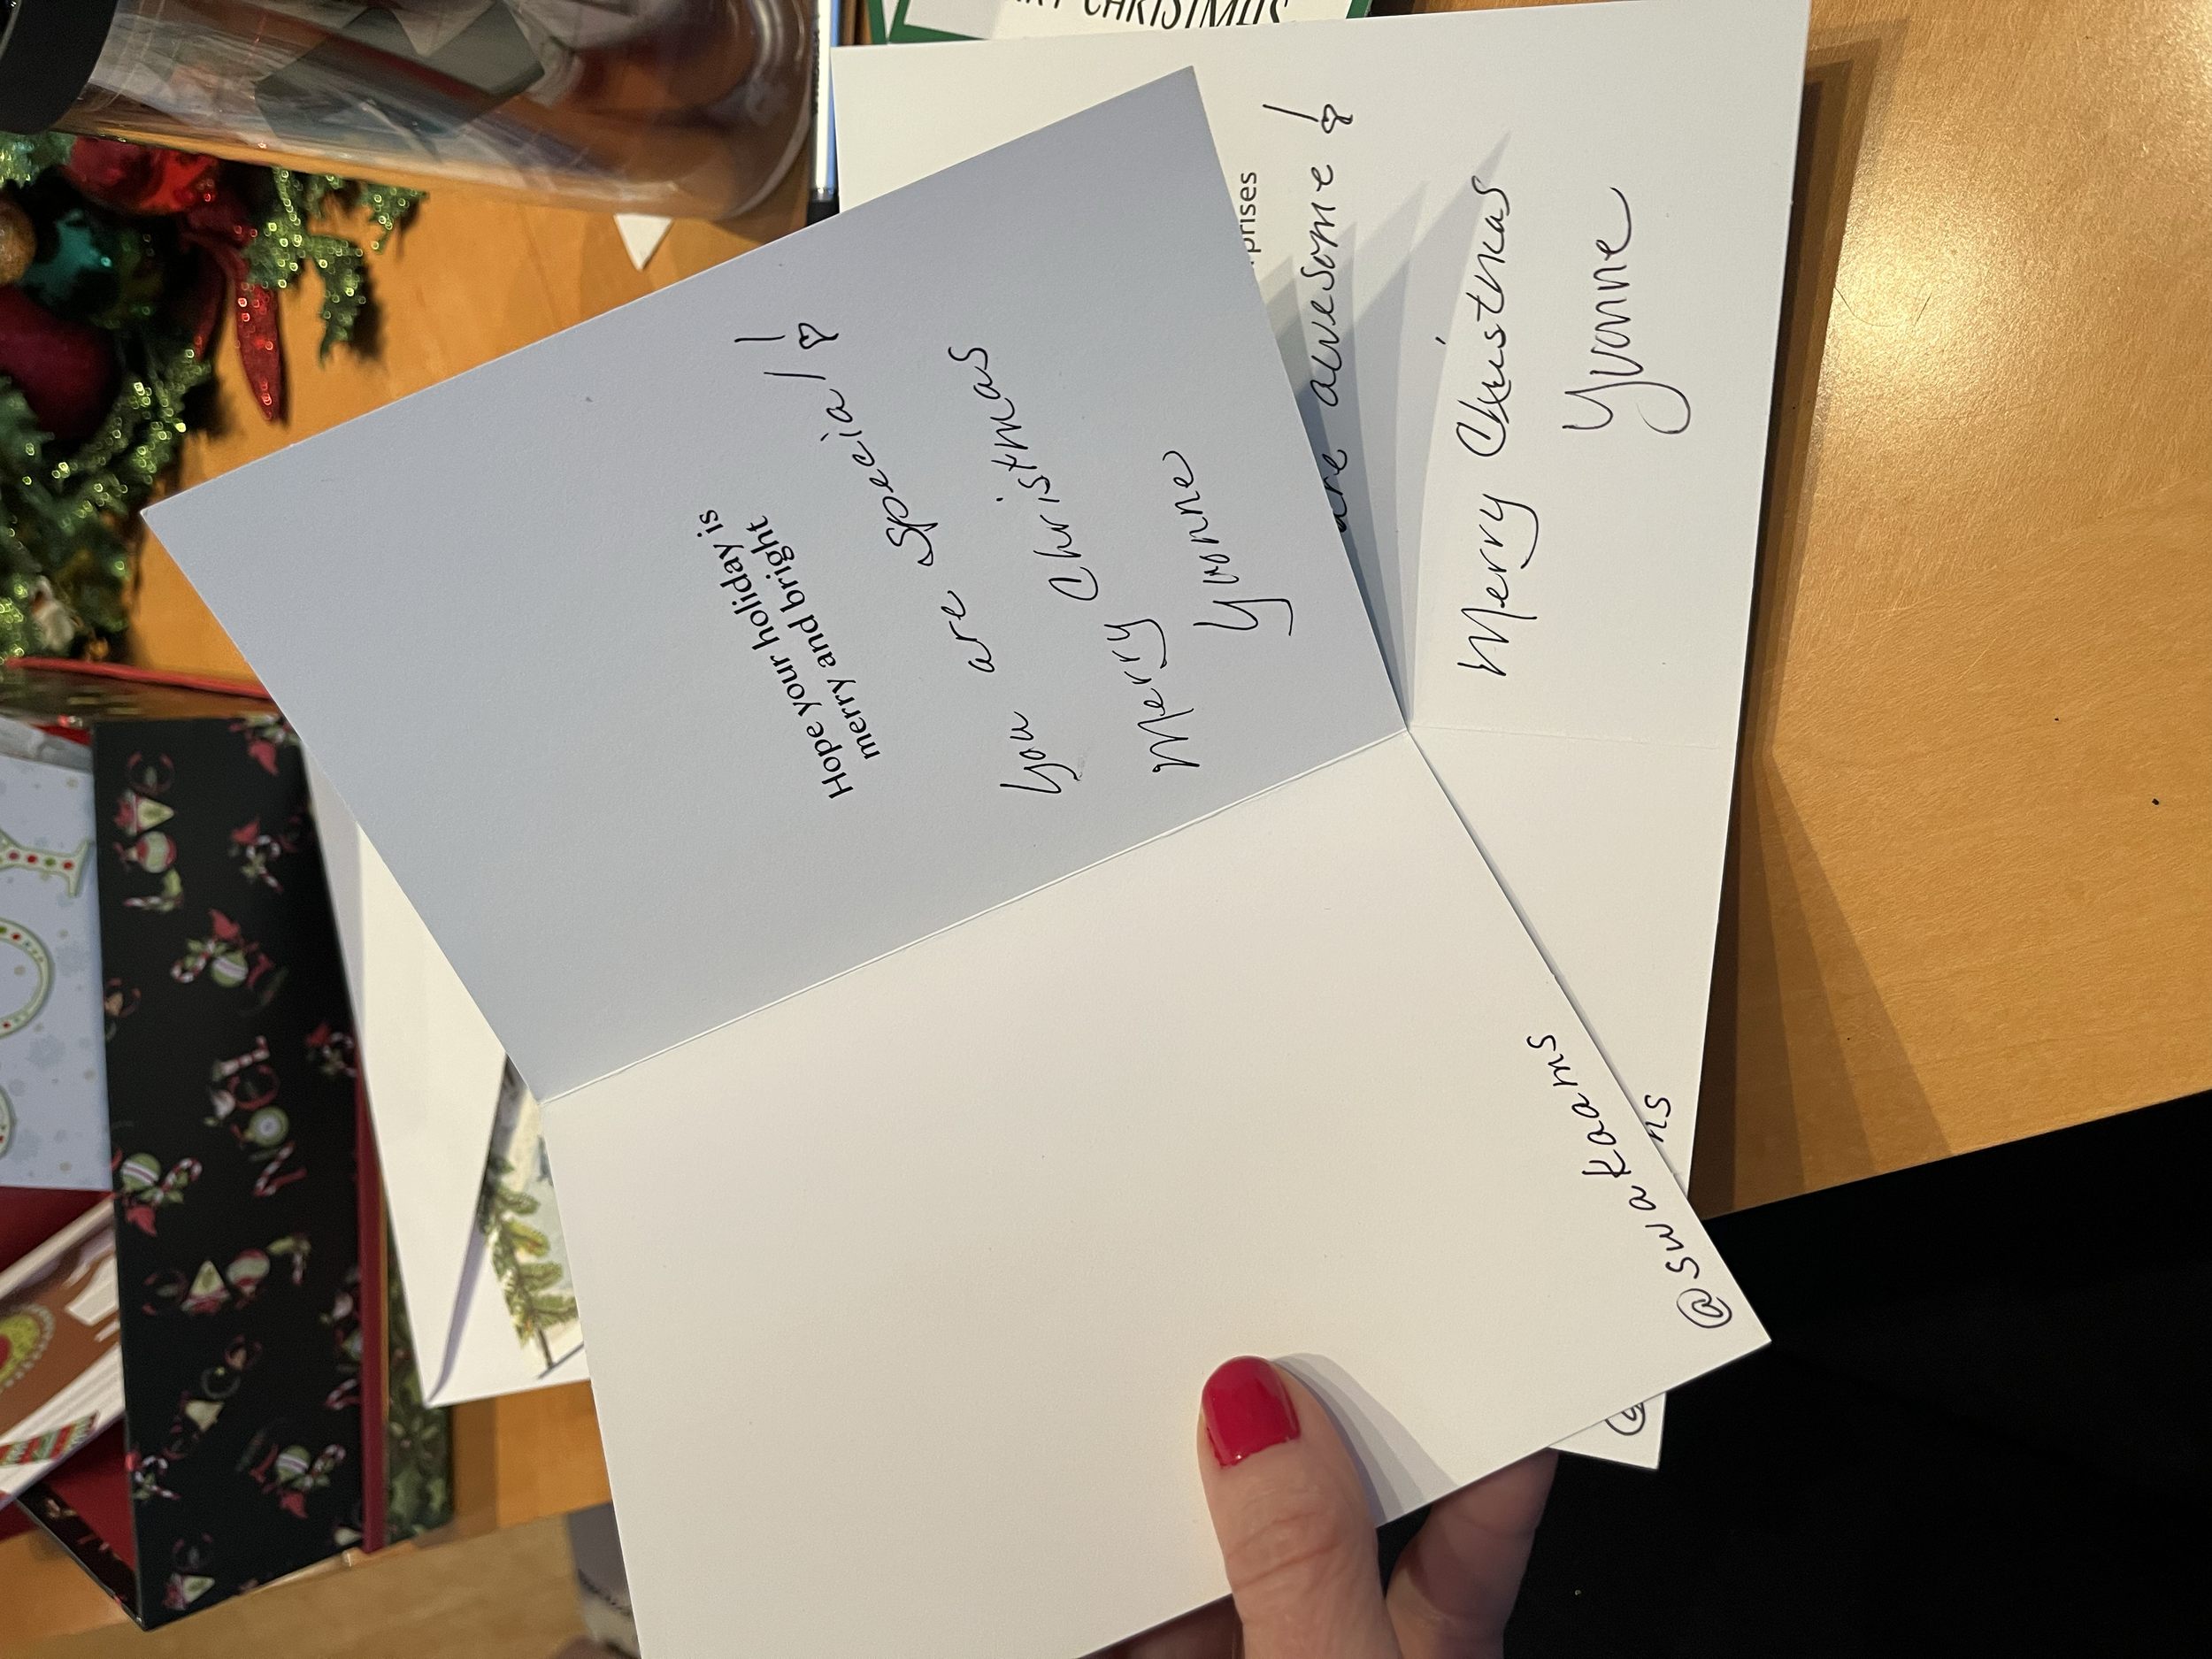 Hope your holiday is
merry and bright
You are special!!
Merry Christmas
Yvonne
@swakaams
prises
are awesome!
Merry Christmas
Yvonne
ns
CHRISTMAS
NOEL